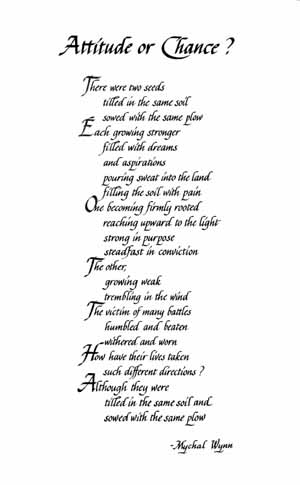 Attitude or Chance?
There were two seeds
tilled in the same soil
sowed with the same plow
Each growing stronger
filled with dreams
and aspirations
pouring sweat into the land
filling the soil with pain
One becoming firmly rooted
reaching upward to the light
strong in purpose
steadfast in conviction
The other,
growing weak
trembling in the wind
The victim of many battles
humbled and beaten
withered and worn
How have their lives taken
such different directions?
Although they were
tilled in the same soil and
sowed with the same plow
-Mychal Wynn